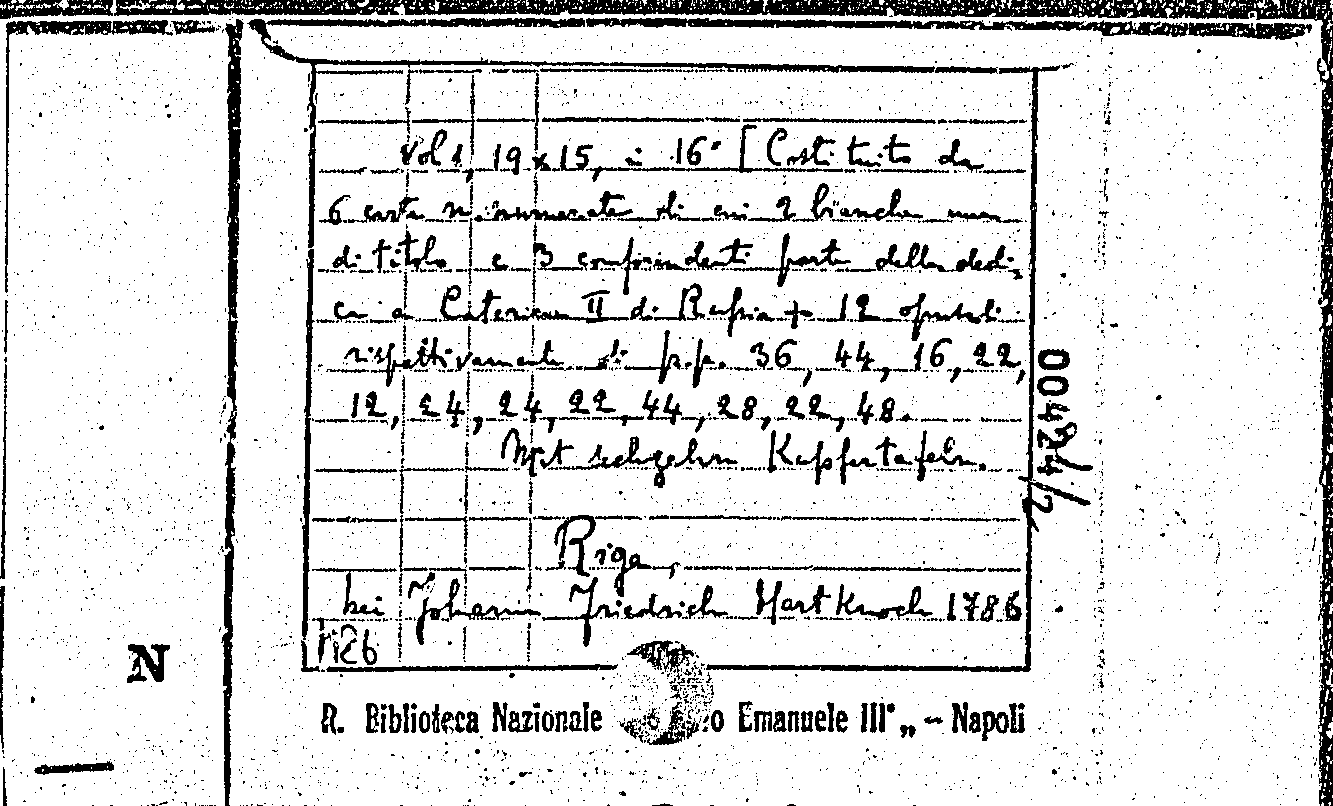 Vol 1, 19 x 15, in 16° [Costituito da
6 carte n. numerate di cui 2 bianche una
di titolo e 3 comprendenti parte della dedi-
ca a Caterina II di Russia + 12 opuscoli
rispettivamente di p.p. 36, 44, 16, 22,
12, 24, 24, 22, 44, 28, 22, 48.
Mit Kupfertafeln.
Riga,
bei Johann Friedrich Hartknoch 1786
00424/2
N
R. Biblioteca Nazionale Emanuele III„ - Napoli